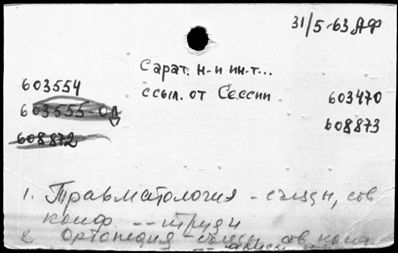 31/5-63 ДФ
Сарат. н-и ин-т...
603554
ссыл. от Сессии
603470
603555-ОД
608873
608872
1. Травматология - съезды, сов
конф -- труды
2. Ортопедия - съезды, сов, конф